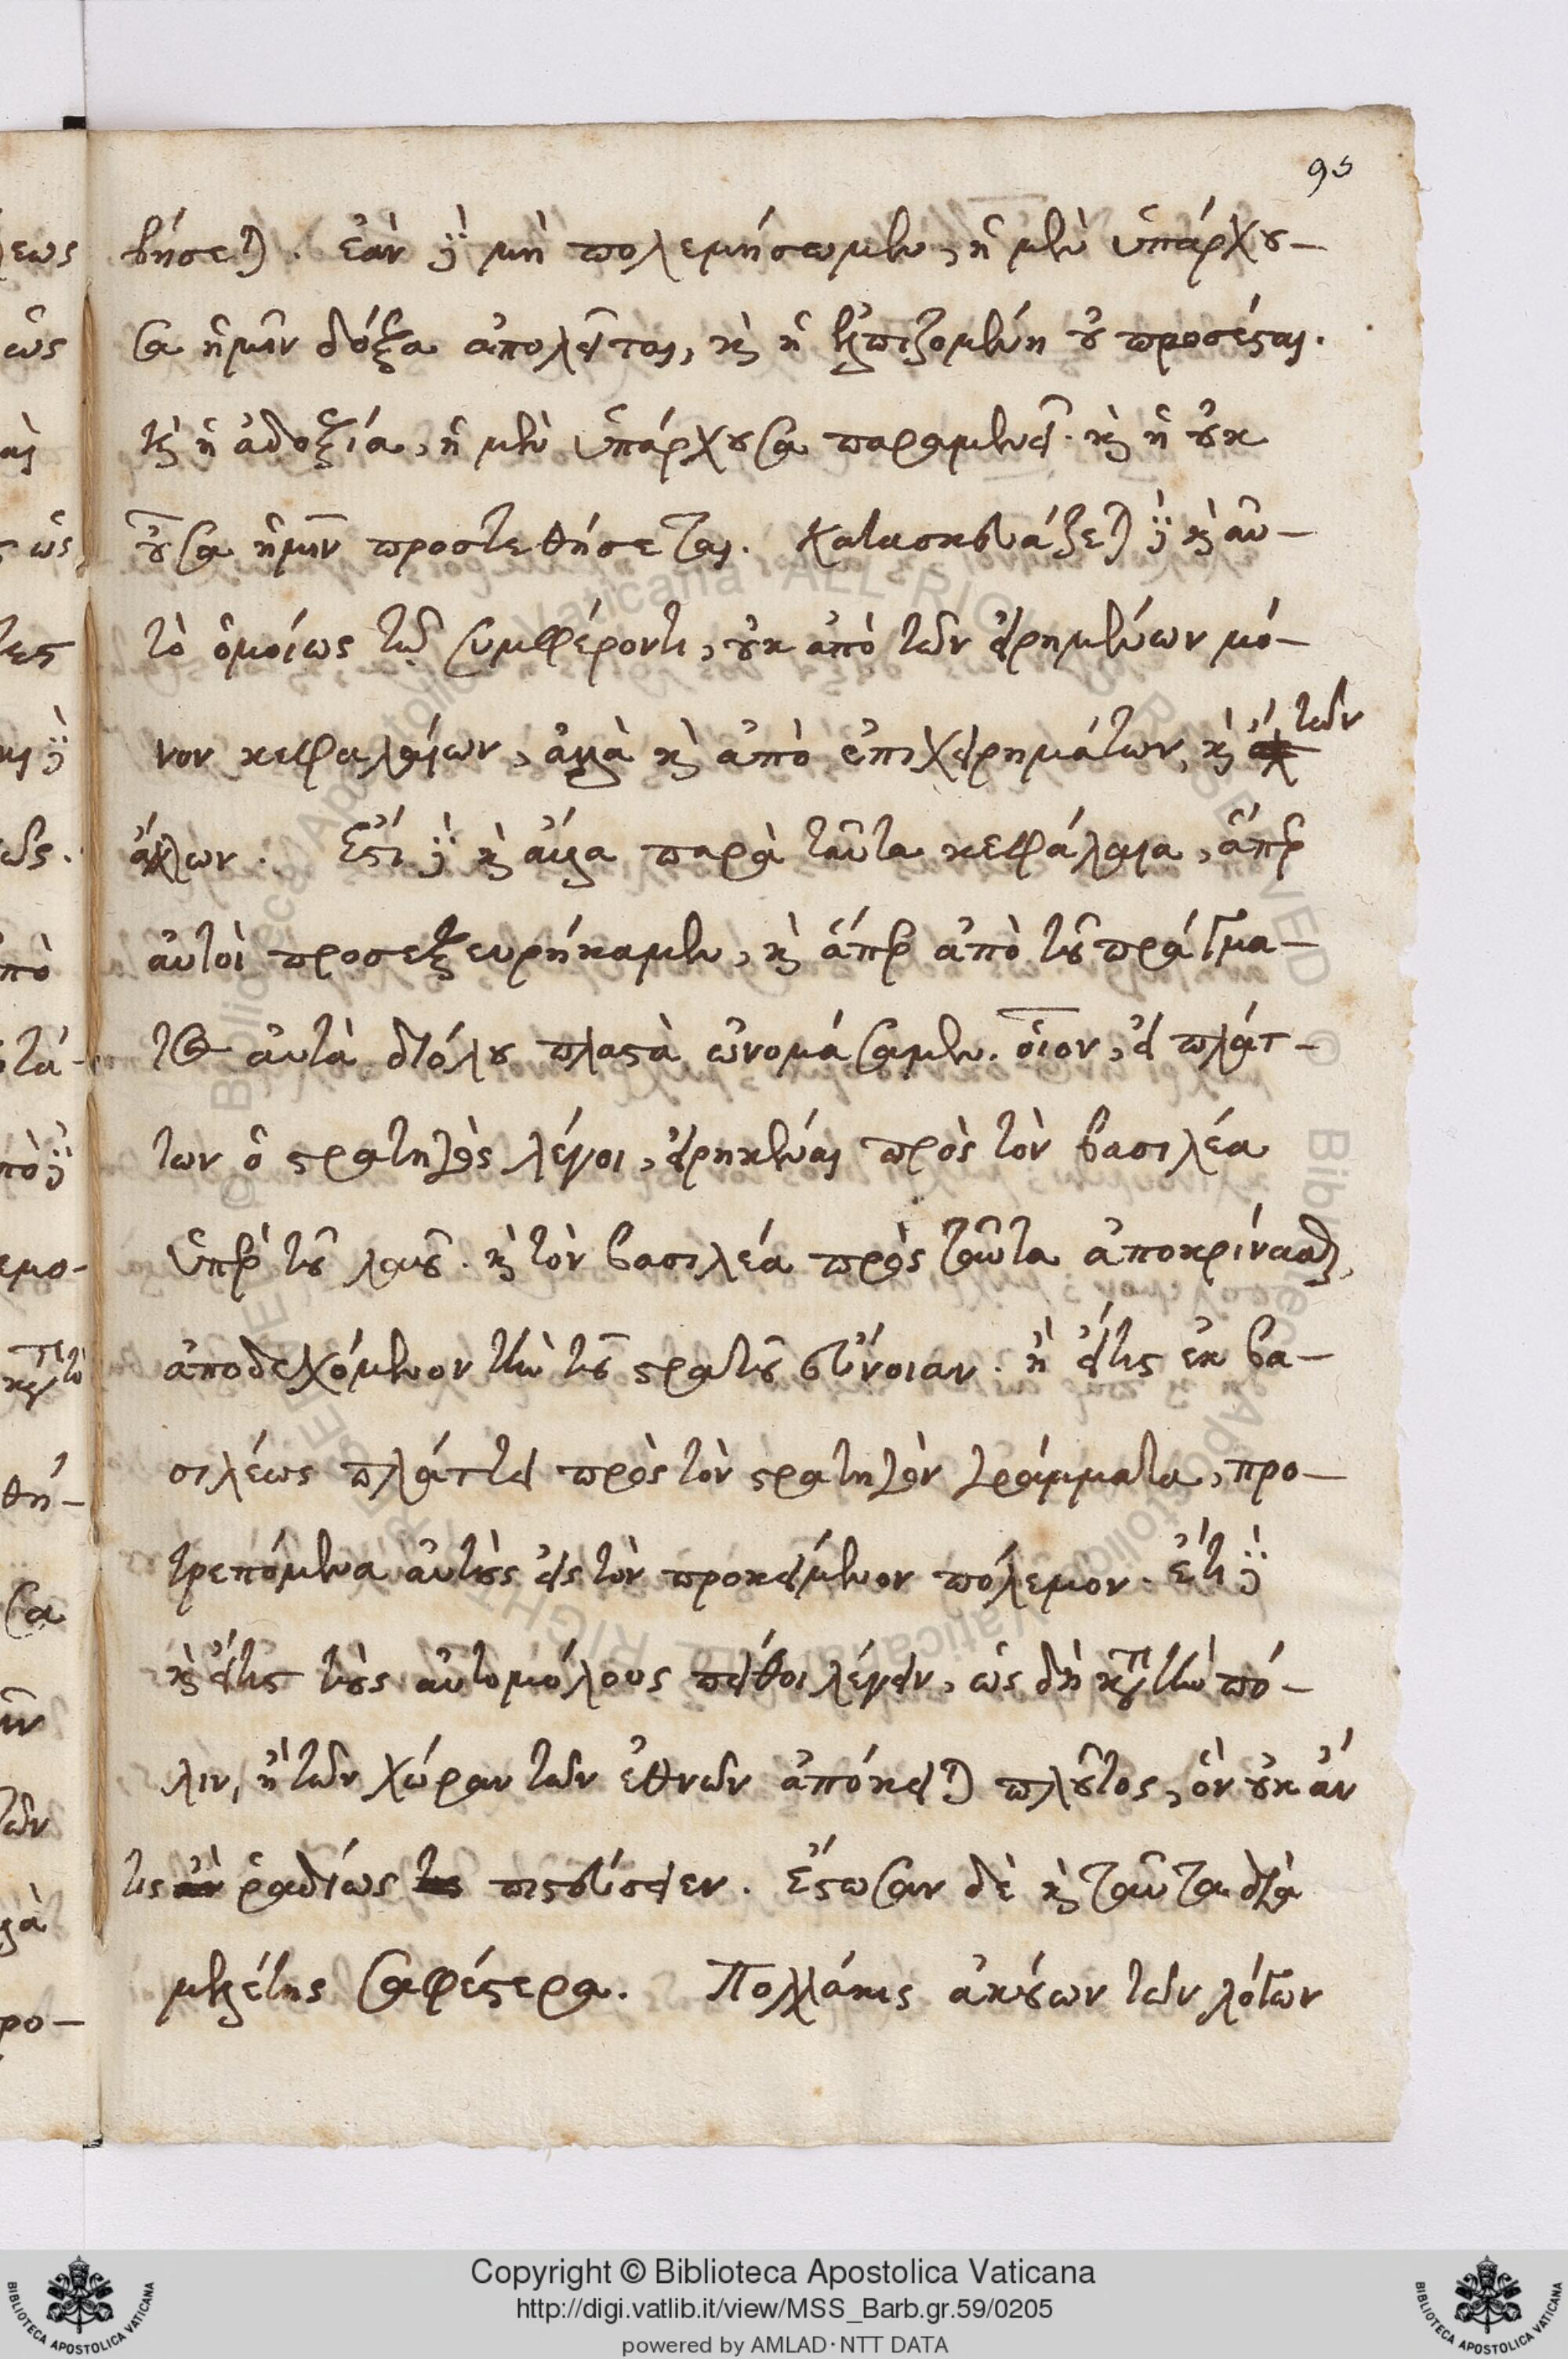 95
βήσεται. ἐὰν δὲ μὴ πολεμήσωμεν, ἡ μὲν ὑπάρχου-
σα ἡμῖν δόξα ἀπολεῖται, καὶ ἡ ἐλπιζομένη οὐ προσέσται.
καὶ ἡ ἀδοξία, ἡ μὲν ὑπάρχουσα παραμενεῖ. καὶ ἡ οὐκ
οὖσα ἡμῖν προστεθήσεται. Κατασκευάζεται δὲ καὶ αὐ-
τὸ ὁμοίως τῷ συμφέροντι, οὐκ ἀπὸ τῶν εἰρημένων μό-
νον κεφαλαίων, ἀλλὰ καὶ ἀπὸ ἐπιχειρημάτων, καὶ τῶν
ἄλλων. Ἔστι δὲ καὶ ἄλλα παρὰ ταῦτα κεφάλαια, ἅπερ
αὐτοὶ προσεξευρήκαμεν, καὶ ἅπερ ἀπὸ τοῦ πράγμα-
τος αὐτὰ διόλου πλαστὰ ὠνομάσαμεν. οἷον, εἰ πλάτ-
των ὁ στρατηγὸς λέγοι, εἰρηκέναι πρὸς τὸν βασιλέα
ὑπὲρ τοῦ λαοῦ. καὶ τὸν βασιλέα πρὸς ταῦτα ἀποκρίνασθαι,
ἀποδεχόμενον τὴν τοῦ στρατοῦ εὔνοιαν. ἢ εἴτις ἐκ βα-
σιλέως πλάττει πρὸς τὸν στρατηγὸν γράμματα, προ-
τρεπόμενα αὐτοὺς εἰς τὸν προκείμενον πόλεμον. ἔτι δὲ
καὶ εἴτις τοὺς αὐτομόλους πείθοι λέγειν, ὡς δὴ κατὰ τὴν πό-
λιν, ἢ τῶν χώραν τῶν ἐθνῶν ἀπόκειται πλοῦτος, ὃν οὐκ ἄν
τις ῥαδίως πιστεύσειεν. Ἔστωσαν δὲ καὶ ταῦτα διὰ
μελέτης σαφέστερα. Πολλάκις ἀκούων τῶν λόγων
Copyright © Biblioteca Apostolica Vaticana
http://digi.vatlib.it/view/MSS_Barb.gr.59/0205
powered by AMLAD·NTT DATA